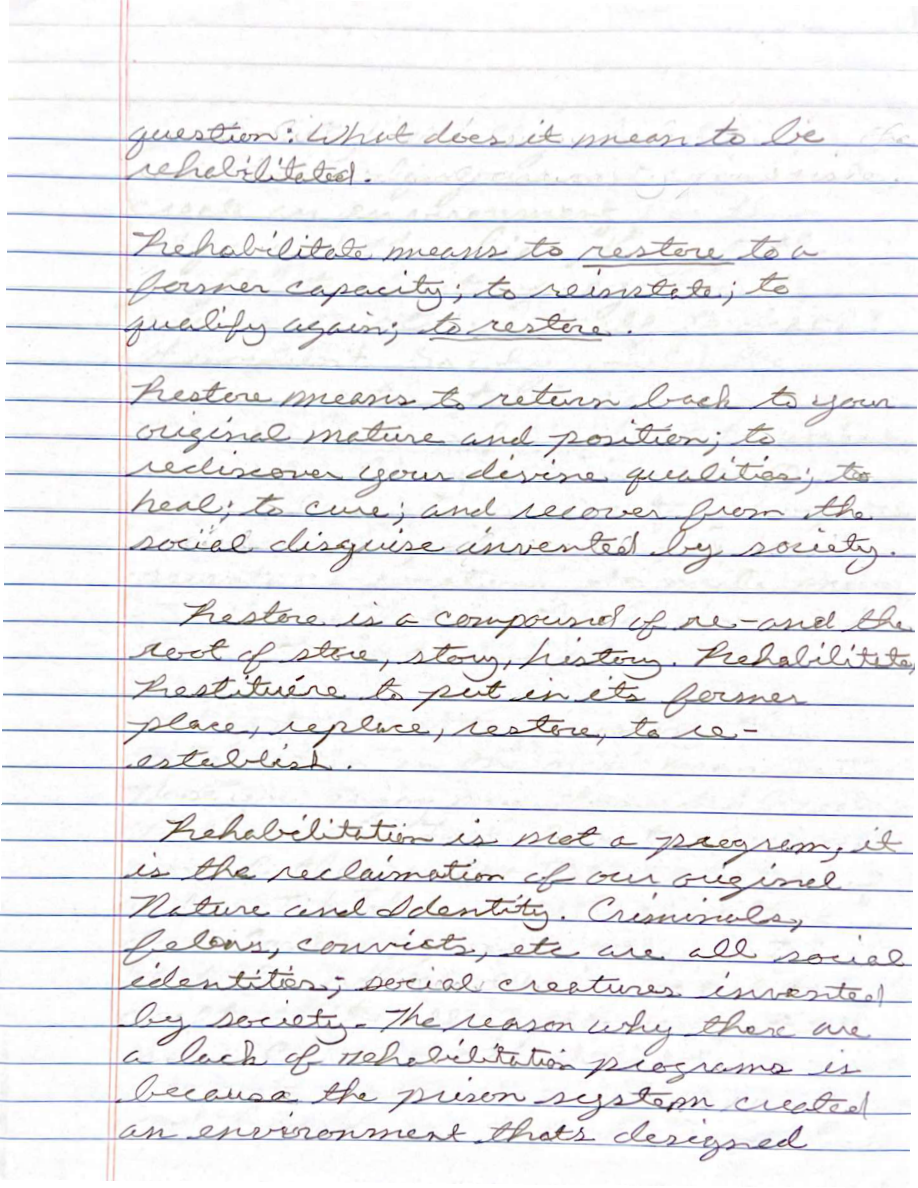 question: What does it mean to be
rehabilitated.
Rehabilitate means to restore to a
former capacity; to reinstate; to
qualify again; to restore.
Restore means to return back to your
original nature and position; to
rediscover your divine qualities; to
heal; to cure; and recover from the
social disguise invented by society.
Restore is a compound of re-and the
root of store, story, history. Rehabilitate,
Restituére to put in its former
place, replace, restore, to re-
establish.
Rehabilitation is not a program, it
is the reclaimation of our original
Nature and Identity. Criminals,
felons, convicts, etc are all social
identities; social creatures invented
by society. The reason why there are
a lack of rehabilitation programs is
because the prison system created
an environment thats designed